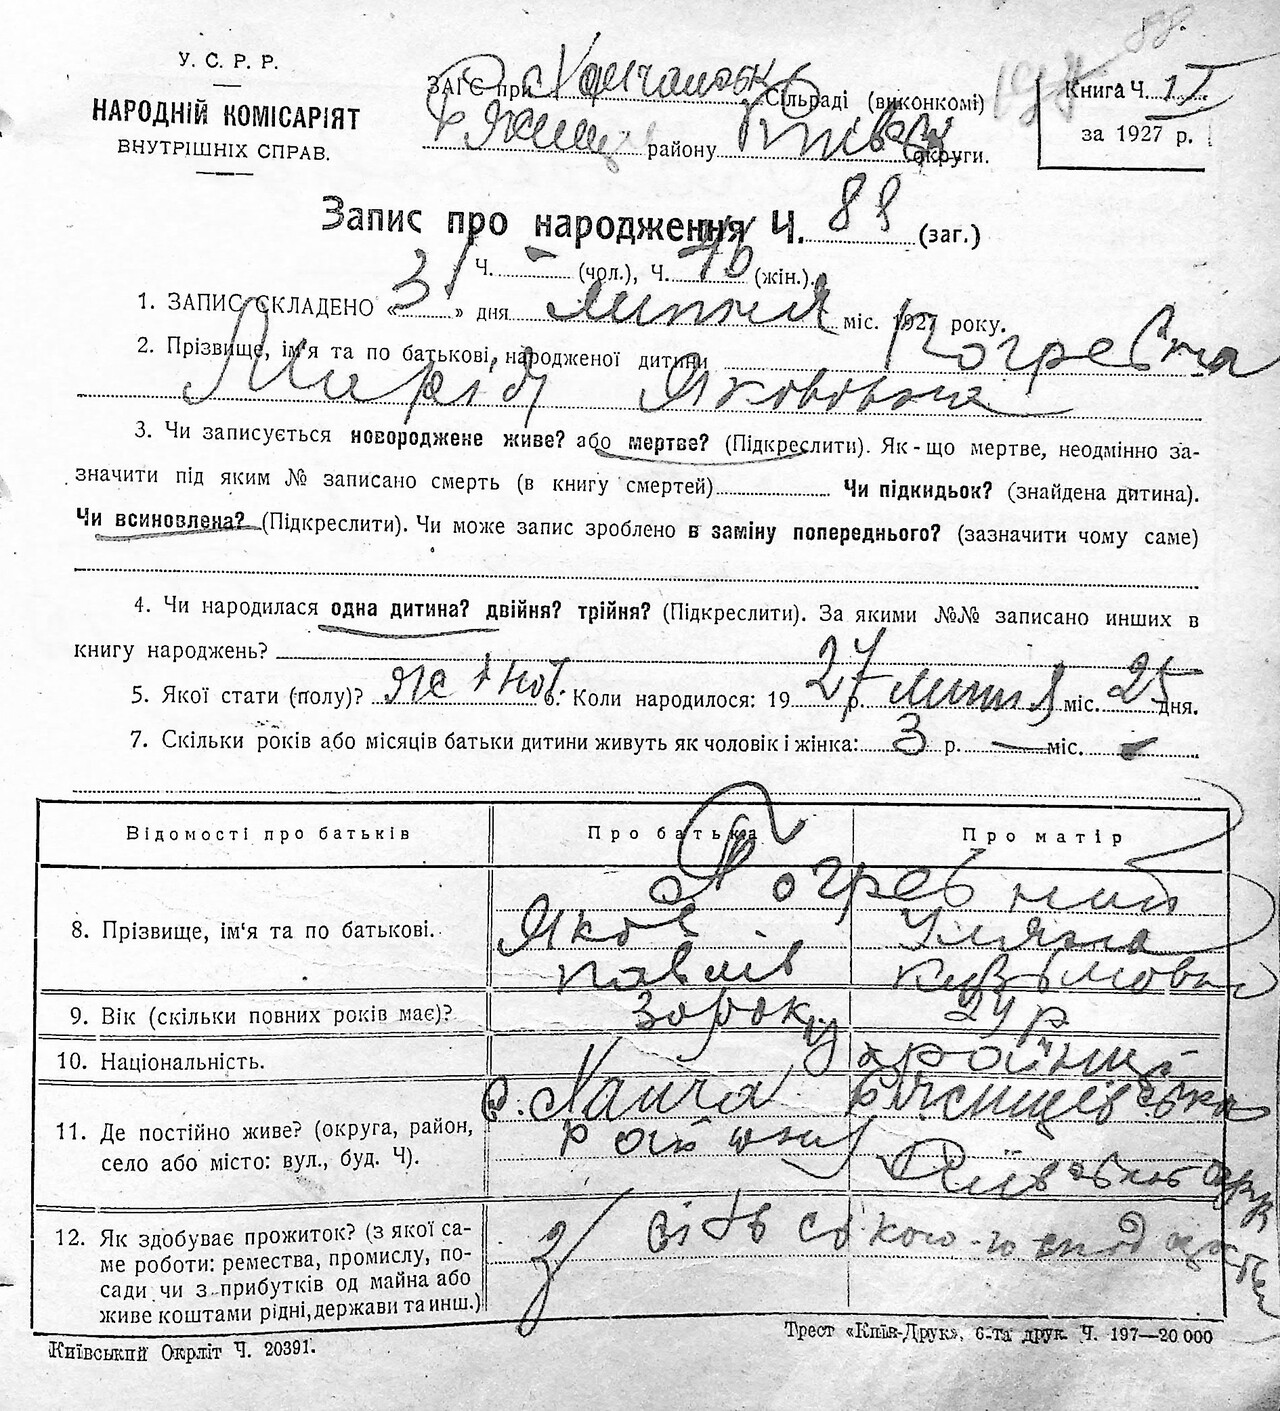 88.
У. С. Р. Р.
НАРОДНІЙ КОМІСАРІЯТ
ВНУТРІШНІХ СПРАВ.
ЗАГС при Сільраді (виконкомі)
району Київськ округи.
Книга Ч. II
за 1927 р.
Запис про народження Ч. 88 (заг.)
Ч. — (чол.), Ч. 40 (жін.).
1. ЗАПИС СКЛАДЕНО «31» дня липня міс. 1927 року.
2. Прізвище, ім'я та по батькові, народженої дитини Погребна
Марія Якововна
3. Чи записується новороджене живе? або мертве? (Підкреслити). Як-що мертве, неодмінно за-
значити під яким № записано смерть (в книгу смертей) Чи підкидьок? (знайдена дитина).
Чи всиновлена? (Підкреслити). Чи може запис зроблено в заміну попереднього? (зазначити чому саме)
4. Чи народилася одна дитина? двійня? трійня? (Підкреслити). За якими №№ записано инших в
книгу народжень?
5. Якої стати (полу)? жіноч. 6. Коли народилося: 1927 р. липня міс. 25 дня.
7. Скільки років або місяців батьки дитини живуть як чоловік і жінка: 3 р. — міс. —
Відомості про батьків Про батька Про матір
Погребний
8. Прізвище, ім'я та по батькові. Яков Уляна
павлів кузьмовна
9. Вік (скільки повних років має)? 30 року 24 р
10. Національність. українці
11. Де постійно живе? (округа, район, с. Ханча
село або місто: вул., буд. Ч). району Київської окр
12. Як здобуває прожиток? (з якої са- з сільського господарства
ме роботи: ремества, промислу, по-
сади чи з прибутків од майна або
живе коштами рідні, держави та инш.)
Київський Окрліт Ч. 20391.
Трест «Київ-Друк», 6-та друк. Ч. 197—20 000